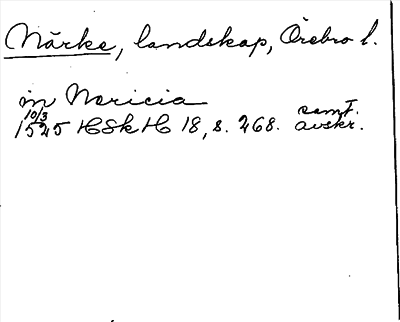 Närke, landskap, Örebro l.
in Nericia
10/3
1525 HSkH 18, s. 268. samt. avskr.